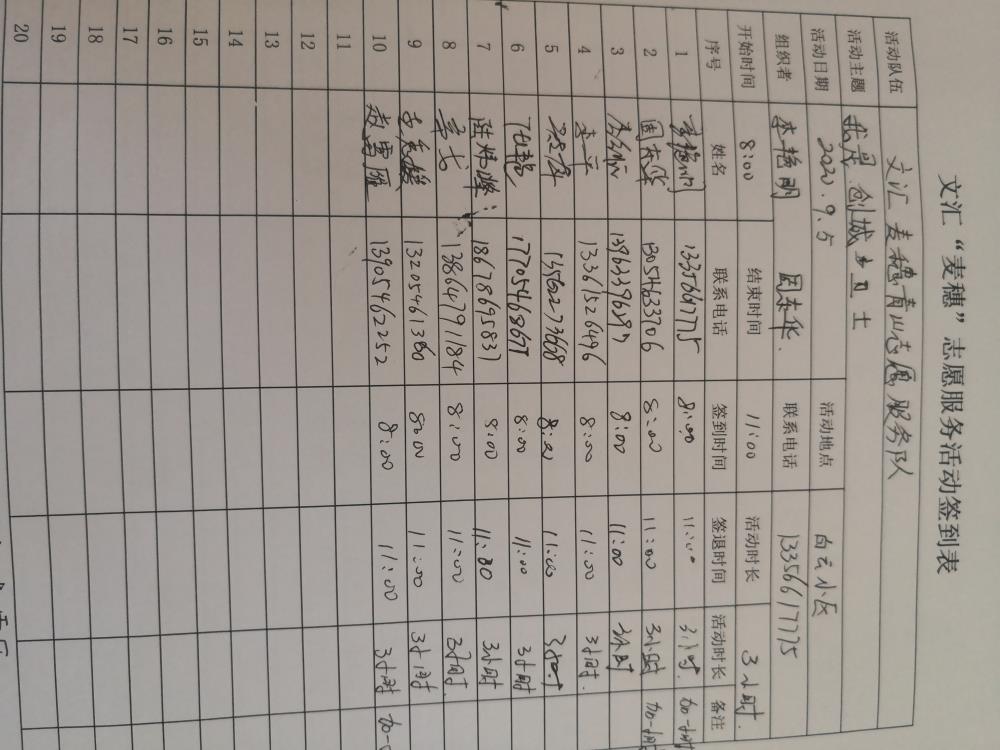 文汇“麦穗”志愿服务活动签到表
活动队伍 文汇麦穗青山志愿服务队
活动主题 我是创城卫士
活动日期 2020.9.5 活动地点 白云小区
组织者 李艳明 周东华. 联系电话 13356617775
开始时间 8:00 结束时间 11:00 活动时长 3小时.
序号 姓名 联系电话 签到时间 签退时间 活动时长 备注
1 李艳明 13356617775 8:00 11:00 3小时. 加一小时
2 周东华 13054633706 8:00 11:00 3小时 加一小时
3 13963396897 8:00 11:00 3小时
4 李平 13361526496 8:00 11:00 3小时.
5 13562273668 8:00 11:00 3小时
6 17705468677 8:00 11:00 3小时
7 陈炜峰 18678695831 8:00 11:00 3小时
8 13864791184 8:00 11:00 3小时
9 13205461360 8:00 11:00 3小时
10 赵雷雁 13905462252 8:00 11:00 3小时 加一
11
12
13
14
15
16
17
18
19
20